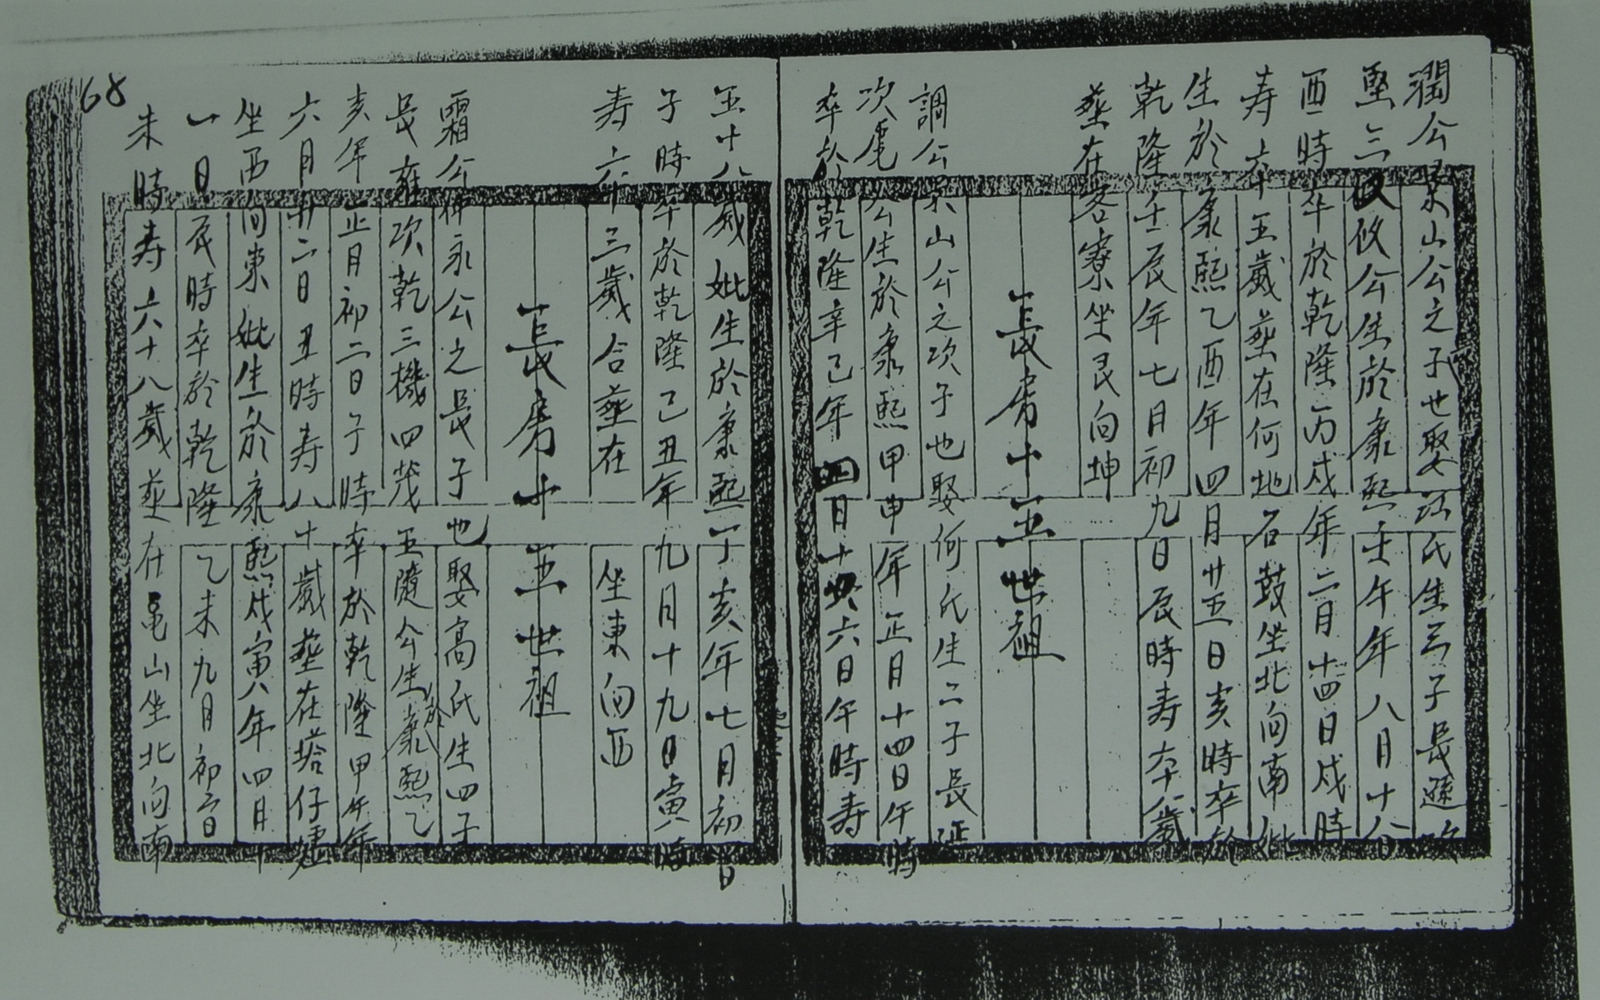 潤公景山公之子也娶江氏生三子長遜次
堅三攸攸公生於康熙壬午年八月十八日
酉時卒於乾隆丙戌年二月十四日戌時
寿六十五歲塟在何地石鼓坐北向南妣
生於康熙乙酉年四月廿五日亥時卒於
乾隆壬辰年七月初九日辰時寿六十八歲
塟在客寮坐艮向坤
長房十五世祖
調公景山公之次子也娶何氏生二子長延
次鳳公生於康熙甲申年正月十四日午時
卒於乾隆辛巳年四月十六日午時寿
五十八歲妣生於康熙丁亥年七月初日
子時卒於乾隆己丑年九月十九日寅時
寿六十三歲合塟在坐東向西
長房十五世祖
霜公仲永公之長子也娶高氏生四子
長雍次乾三機四茂五隨公生於康熙乙
亥年正月初二日子時卒於乾隆甲午年
六月廿二日丑時寿八十歲塟在塔仔墘
坐西向東妣生於康熙戊寅年四月十
一日辰時卒於乾隆乙未九月初六日
未時寿六十八歲塟在黾山坐北向南
68